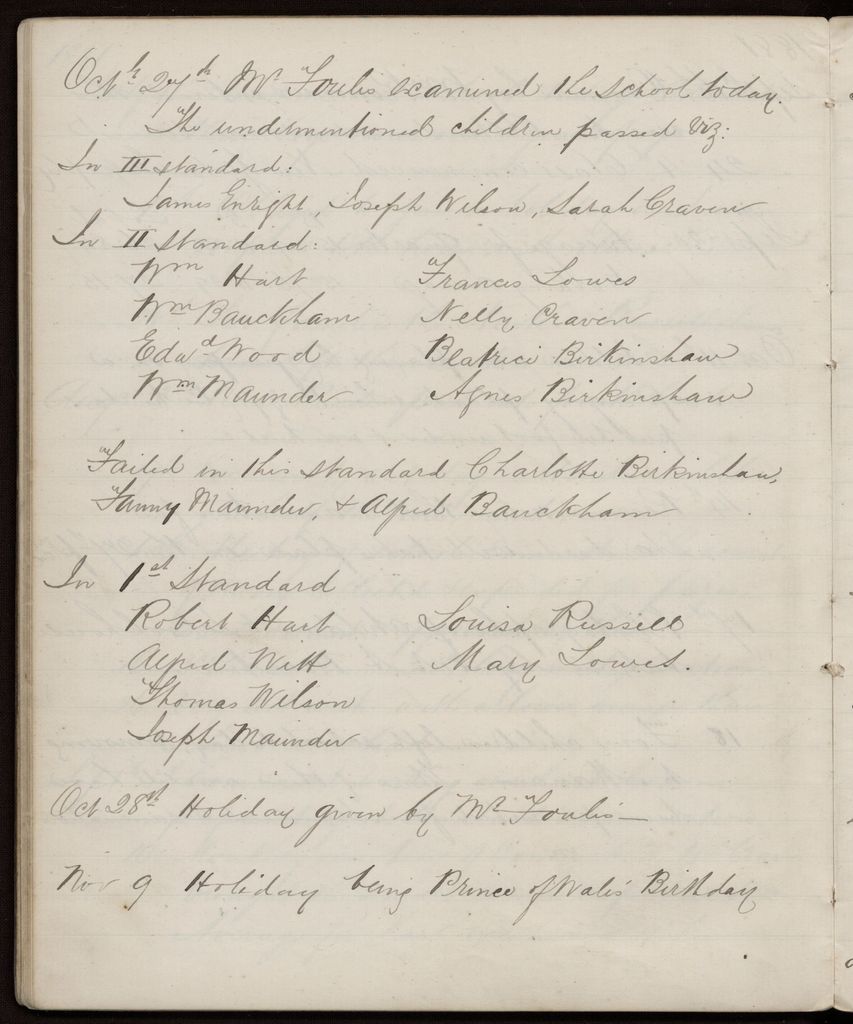 Octr 27th Mr Foulis examined the school today.
The undermentioned children passed Viz:
In III standard:
James Enright, Joseph Wilson, Sarah Craven
In II Standard:
Wm Hart Francis Lowes
Wm Bauckham Nelly Craven
Edwd Wood Beatrice Birkinshaw
Wm Maunder Agnes Birkinshaw
Failed in this standard Charlotte Birkinshaw,
Fanny Maunder, & Alfred Bauckham
In 1st Standard
Robert Hart Louisa Russell
Alfred Witt Mary Lowes.
Thomas Wilson
Joseph Maunder
Oct 28th Holiday given by Mr Foulis—
Nov 9 Holiday being Prince of Wales' Birthday